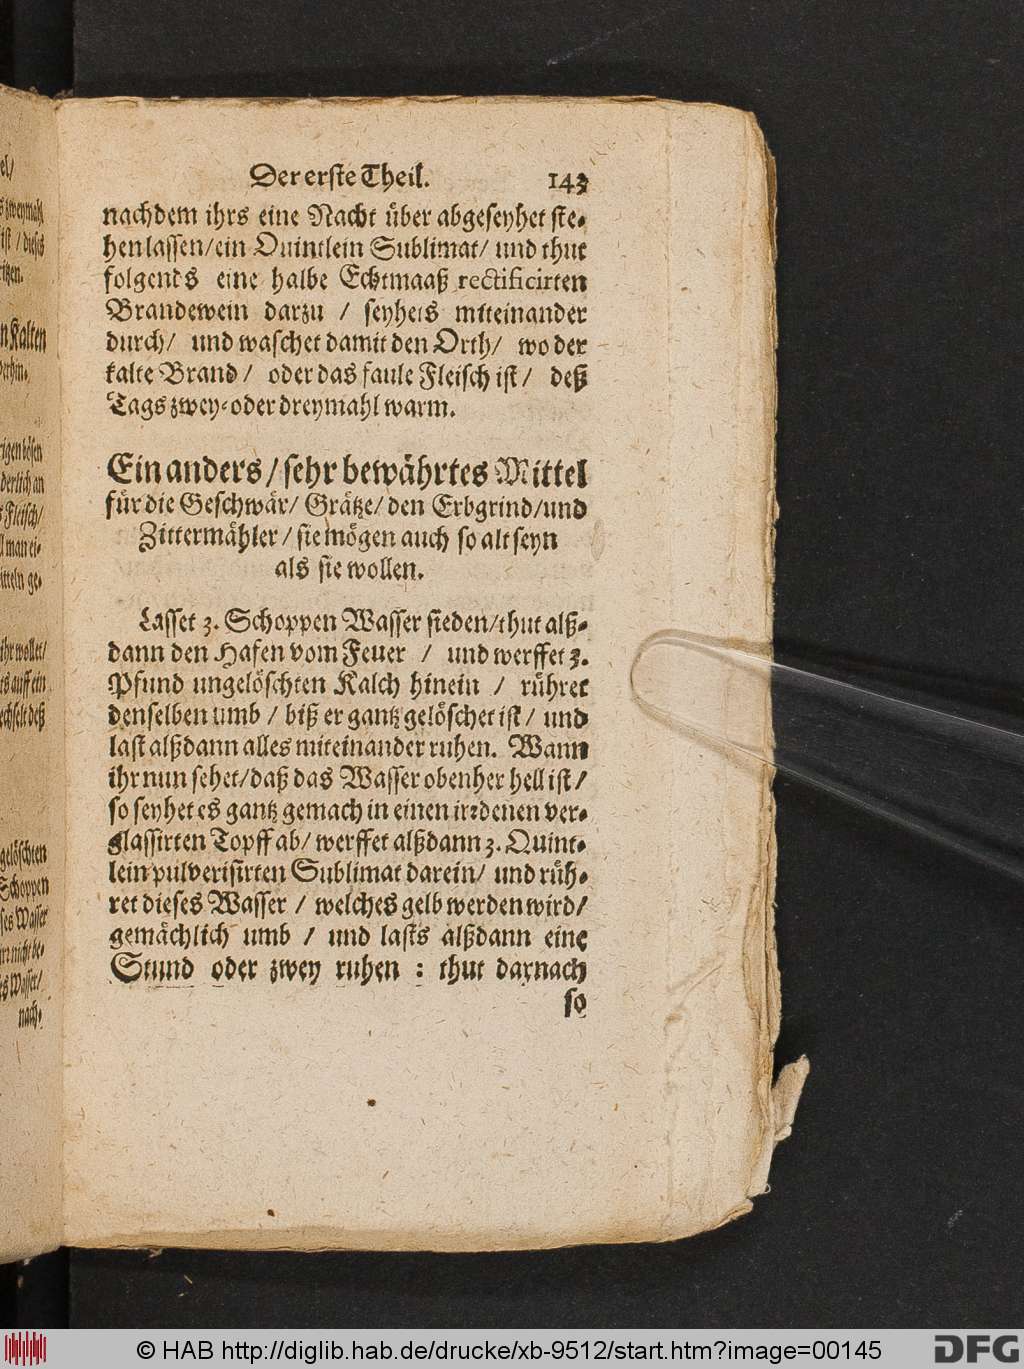 Der erste Theil. 143
nachdem ihrs eine Nacht über abgeseyhet ste-
hen lassen/ ein Quintlein Sublimat/ und thut
folgends eine halbe Echtmaaß rectificirten
Brandewein darzu / seyhets miteinander
durch/ und waschet damit den Orth/ wo der
kalte Brand / oder das faule Fleisch ist / deß
Tags zwey- oder dreymahl warm.
Ein anders / sehr bewährtes Mittel
für die Geschwär/ Grätze/ den Erbgrind/ und
Zittermähler / sie mögen auch so alt seyn
als sie wollen.
Lasset 3. Schoppen Wasser sieden/ thut alß-
dann den Hafen vom Feuer / und werffet 3.
Pfund ungelöschten Kalch hinein / rühret
denselben umb / biß er gantz gelöschet ist / und
last alßdann alles miteinander ruhen. Wann
ihr nun sehet/ daß das Wasser obenher hell ist /
so seyhet es gantz gemach in einen irrdenen ver-
glassirten Topff ab/ werffet alßdann 3. Quint-
lein pulverisirten Sublimat darein/ und rüh-
ret dieses Wasser / welches gelb werden wird/
gemächlich umb / und lasts alßdann eine
Stund oder zwey ruhen : thut darnach
so
el/
zweymahl
ist / dieses
n Kalten
rigen bösen
derlich an
s Fleisch/
l man ei-
itteln ge-
ihr wollet/
ts auff ein
echselt deß
gelöschten
Schoppen
ses Wasser
nicht be-
es Wasser/
nach-
© HAB http://diglib.hab.de/drucke/xb-9512/start.htm?image=00145
DFG